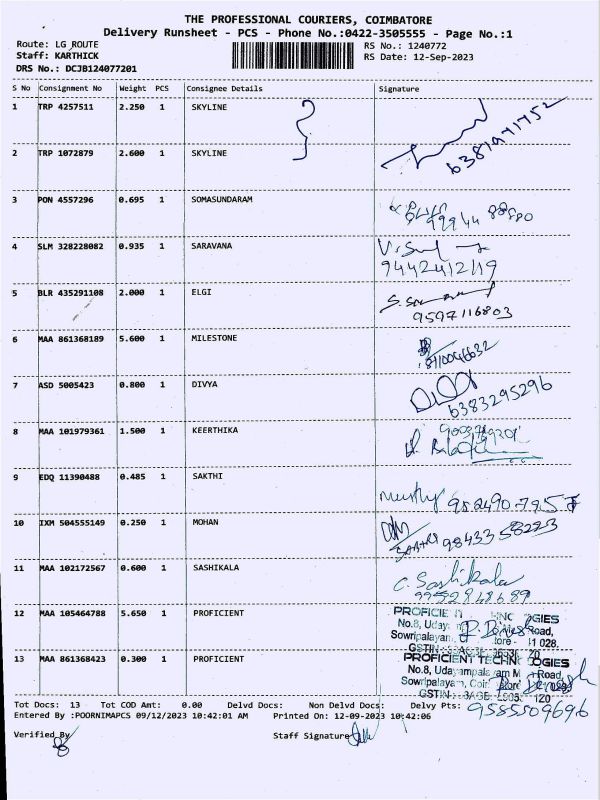 THE PROFESSIONAL COURIERS, COIMBATORE
Delivery Runsheet - PCS - Phone No.:0422-3505555 - Page No.:1
Route: LG ROUTE RS No.: 1240772
Staff: KARTHICK RS Date: 12-Sep-2023
DRS No.: DCJB124077201
S No Consignment No Weight PCS Consignee Details Signature
1 TRP 4257511 2.250 1 SKYLINE
6381971752
2 TRP 1072879 2.600 1 SKYLINE
3 PON 4557296 0.695 1 SOMASUNDARAM
4 SLM 328228082 0.935 1 SARAVANA
9442412119
5 BLR 435291108 2.000 1 ELGI
9597116803
6 MAA 861368189 5.600 1 MILESTONE
8110046632
7 ASD 5005423 0.800 1 DIVYA
6383295296
8 MAA 101979361 1.500 1 KEERTHIKA
9 EDQ 11390488 0.485 1 SAKTHI
10 IXM 504555149 0.250 1 MOHAN
9843358223
11 MAA 102172567 0.600 1 SASHIKALA
C. Sashikala
12 MAA 105464788 5.650 1 PROFICIENT
13 MAA 861368423 0.300 1 PROFICIENT
PROFICIENT TECHNOLOGIES
No.8, Udayampalayam Road,
Sowripalayam,
9585509696
Tot Docs: 13 Tot COD Amt: 0.00 Delvd Docs: Non Delvd Docs: Delvy Pts:
Entered By :POORNIMAPCS 09/12/2023 10:42:01 AM Printed On: 12-09-2023 10:42:06
Verified By Staff Signature